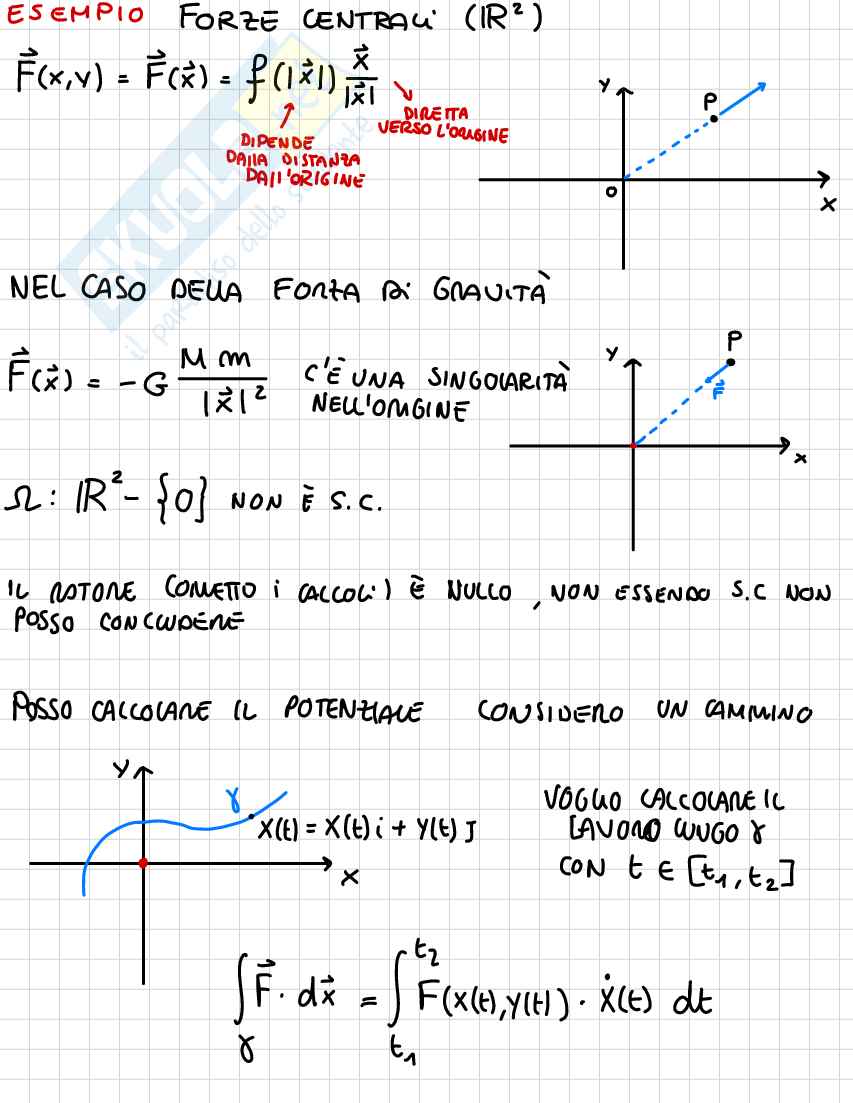 ESEMPIO FORZE CENTRALI (ℝ²)
F⃗(x,y) = F⃗(x⃗) = f(|x⃗|) x⃗/|x⃗|
DIRETTA
VERSO L'ORIGINE
DIPENDE
DALLA DISTANZA
DALL'ORIGINE
Y
P
O
X
SKUOLA.net
il paradiso dello studente
NEL CASO DELLA FORZA DI GRAVITÀ
F⃗(x⃗) = -G M m/|x⃗|² C'È UNA SINGOLARITÀ
NELL'ORIGINE
Y
P
F⃗
X
Ω: ℝ² - {0} NON È S.C.
IL ROTORE (OMETTO I CALCOLI) È NULLO, NON ESSENDO S.C NON
POSSO CONCLUDERE
POSSO CALCOLARE IL POTENZIALE CONSIDERO UN CAMMINO
Y
γ
X(t) = X(t) i + Y(t) J
X
VOGLIO CALCOLARE IL
LAVORO LUNGO γ
CON t ∈ [t₁, t₂]
∫_γ F⃗ · dx⃗ = ∫_{t₁}^{t₂} F(X(t),Y(t)) · Ẋ(t) dt